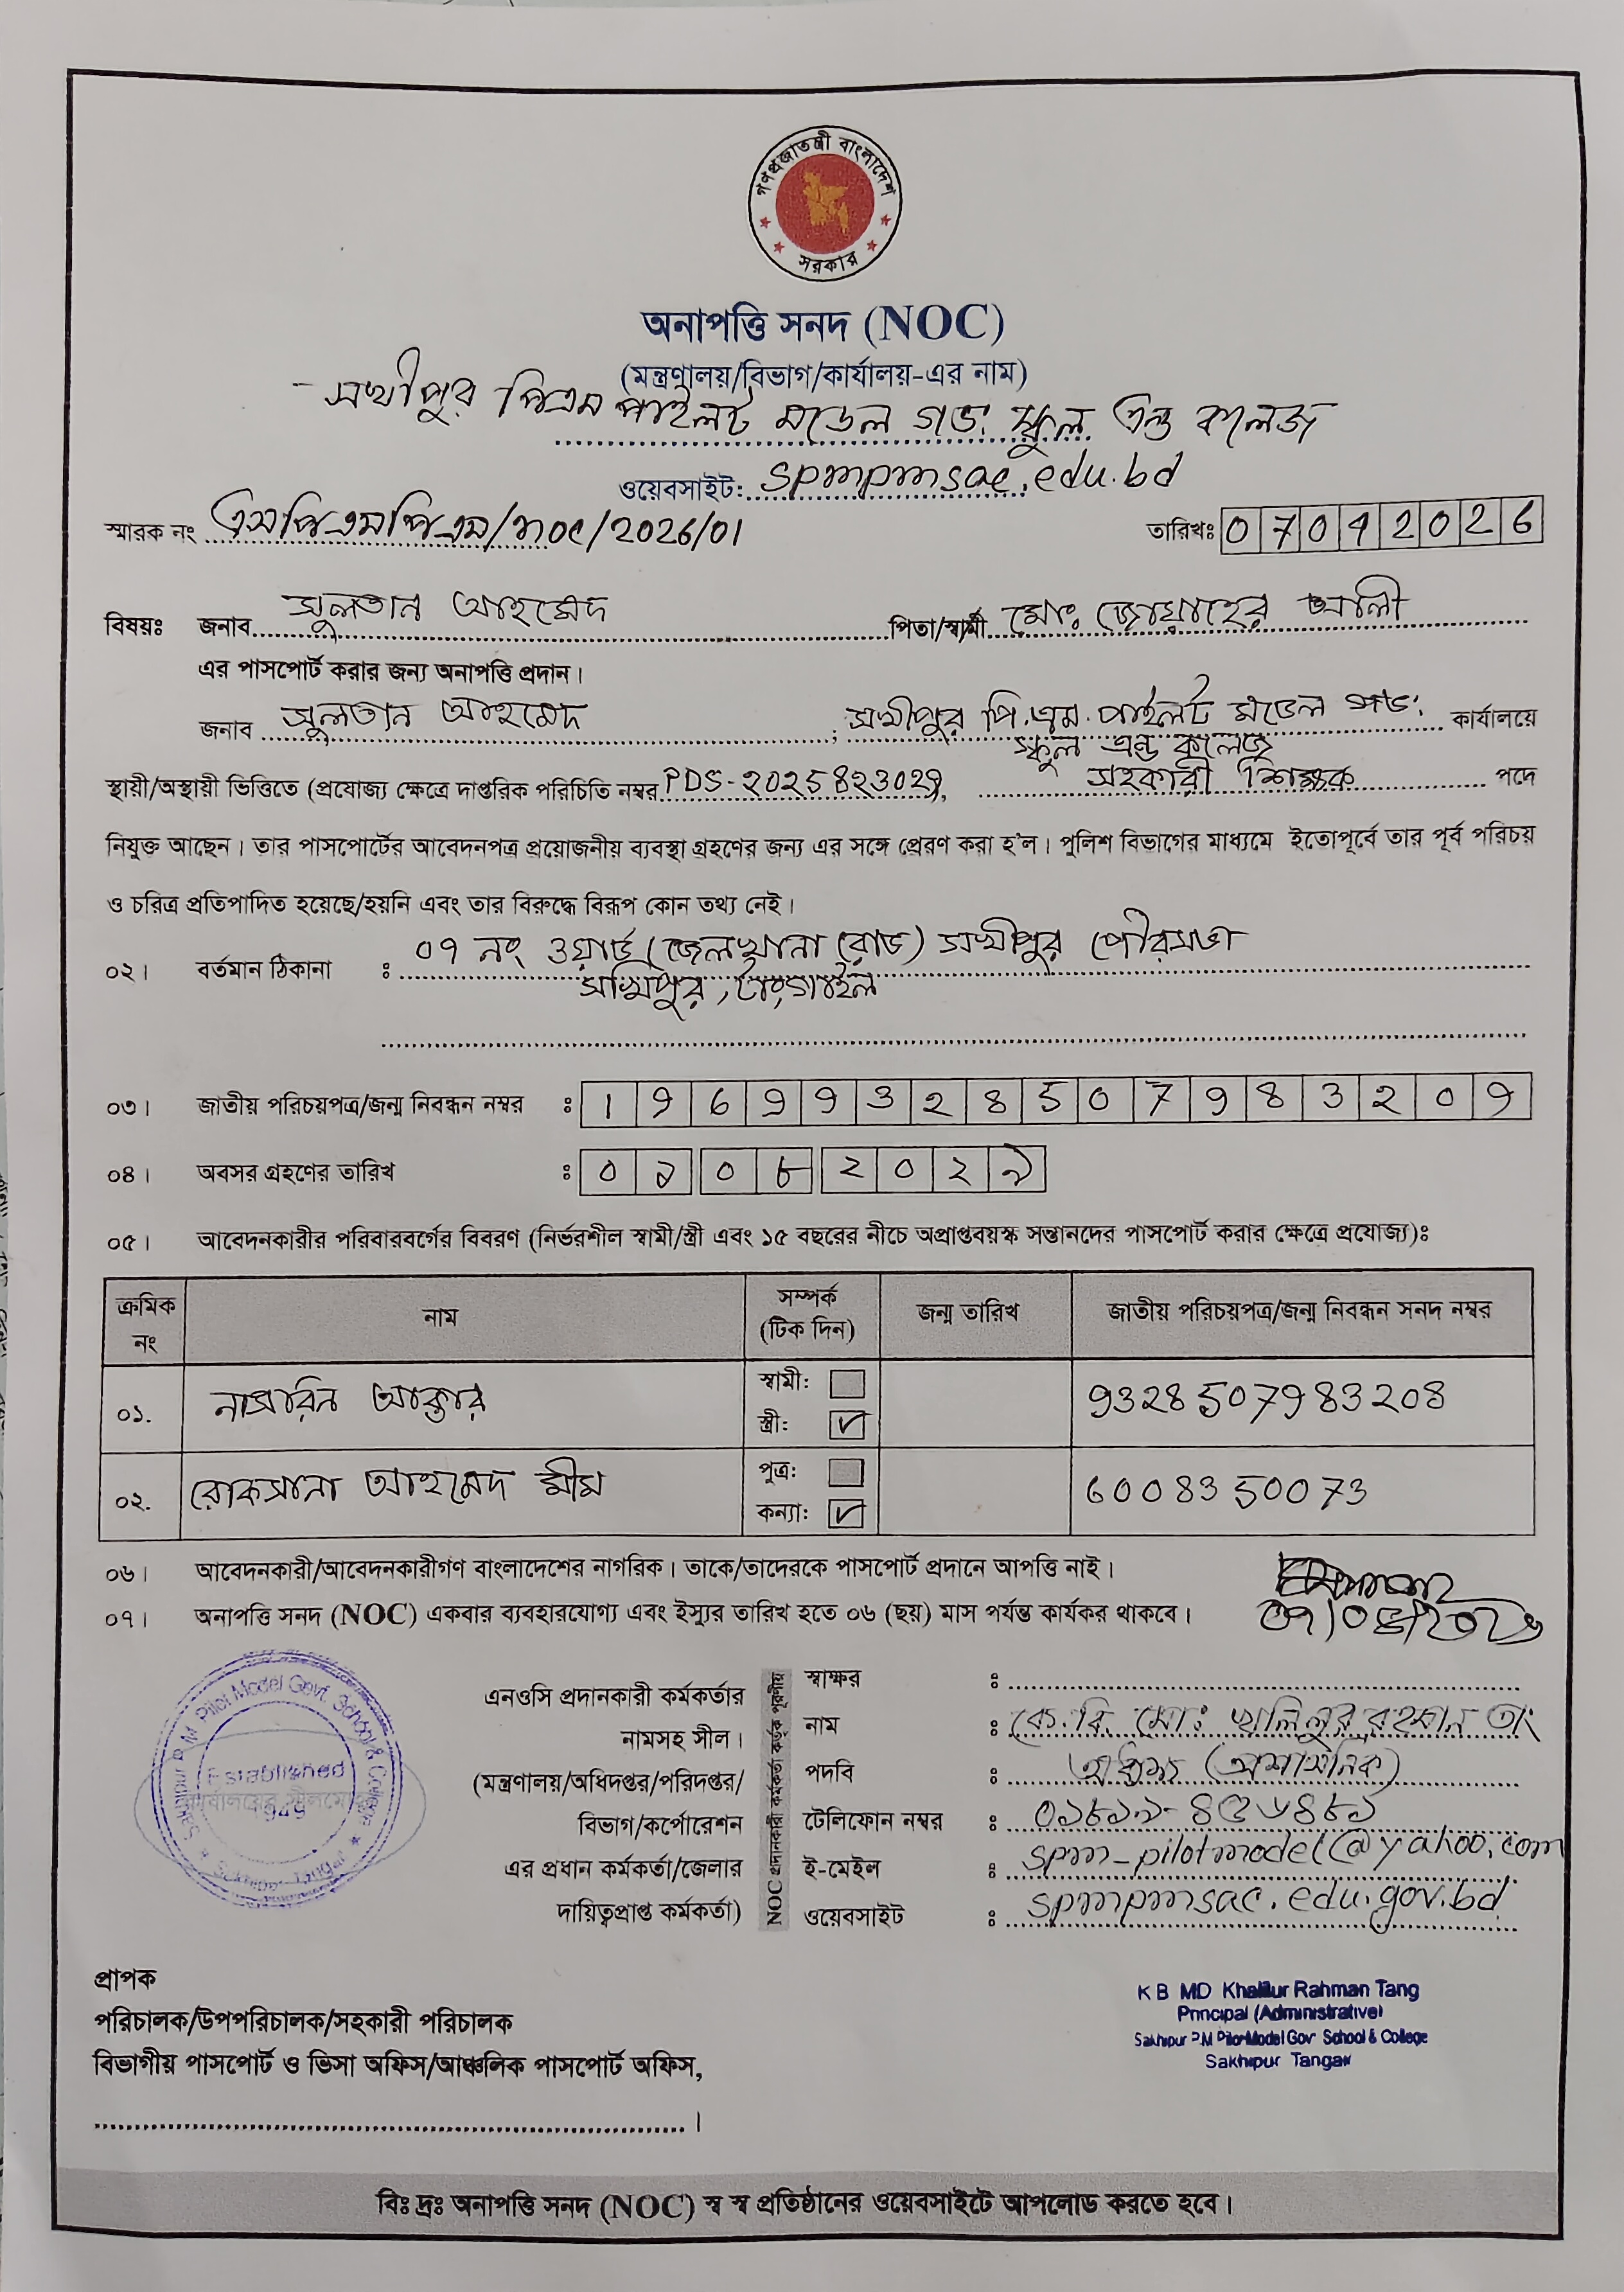 গণপ্রজাতন্ত্রী বাংলাদেশ
সরকার
অনাপত্তি সনদ (NOC)
(মন্ত্রণালয়/বিভাগ/কার্যালয়-এর নাম)
সখীপুর পিএম পাইলট মডেল গভ. স্কুল এন্ড কলেজ
ওয়েবসাইট: spmpmsac.edu.bd
স্মারক নং এসপিএমপিএম/NOC/2026/01 তারিখঃ 07042026
বিষয়ঃ জনাব সুলতান আহমেদ পিতা/স্বামী মোঃ জোয়াহের আলী
এর পাসপোর্ট করার জন্য অনাপত্তি প্রদান।
জনাব সুলতান আহমেদ ; সখীপুর পি.এম. পাইলট মডেল গভ: কার্যালয়ে
স্কুল এন্ড কলেজ
স্থায়ী/অস্থায়ী ভিত্তিতে (প্রযোজ্য ক্ষেত্রে দাপ্তরিক পরিচিতি নম্বর PDS-2025823029), সহকারী শিক্ষক পদে
নিযুক্ত আছেন। তার পাসপোর্টের আবেদনপত্র প্রয়োজনীয় ব্যবস্থা গ্রহণের জন্য এর সঙ্গে প্রেরণ করা হ'ল। পুলিশ বিভাগের মাধ্যমে ইতোপূর্বে তার পূর্ব পরিচয়
ও চরিত্র প্রতিপাদিত হয়েছে/হয়নি এবং তার বিরুদ্ধে বিরূপ কোন তথ্য নেই।
০২। বর্তমান ঠিকানা : ০৭ নং ওয়ার্ড (জেলখানা রোড) সখীপুর পৌরসভা
সখিপুর, টাংগাইল
০৩। জাতীয় পরিচয়পত্র/জন্ম নিবন্ধন নম্বর : 19699328507983209
০৪। অবসর গ্রহণের তারিখ : ০১০৮২০২৯
০৫। আবেদনকারীর পরিবারবর্গের বিবরণ (নির্ভরশীল স্বামী/স্ত্রী এবং ১৫ বছরের নীচে অপ্রাপ্তবয়স্ক সন্তানদের পাসপোর্ট করার ক্ষেত্রে প্রযোজ্য)ঃ
ক্রমিক নং নাম সম্পর্ক (টিক দিন) জন্ম তারিখ জাতীয় পরিচয়পত্র/জন্ম নিবন্ধন সনদ নম্বর
০১. নাসরিন আক্তার স্বামী: স্ত্রী: ✓ 9328507983208
০২. রোকসানা আহমেদ মীম পুত্র: কন্যা: ✓ 6008350073
০৬। আবেদনকারী/আবেদনকারীগণ বাংলাদেশের নাগরিক। তাকে/তাদেরকে পাসপোর্ট প্রদানে আপত্তি নাই।
০৭। অনাপত্তি সনদ (NOC) একবার ব্যবহারযোগ্য এবং ইস্যুর তারিখ হতে ০৬ (ছয়) মাস পর্যন্ত কার্যকর থাকবে।
P M Pilot Model Govt. School & College
Established
1949
কার্যালয়ের সীলমো
এনওসি প্রদানকারী কর্মকর্তার
নামসহ সীল।
(মন্ত্রণালয়/অধিদপ্তর/পরিদপ্তর/
বিভাগ/কর্পোরেশন
এর প্রধান কর্মকর্তা/জেলার
দায়িত্বপ্রাপ্ত কর্মকর্তা)
NOC প্রদানকারী কর্মকর্তা কর্তৃক পূরণীয়
স্বাক্ষর :
নাম : কে.বি. মোঃ খলিলুর রহমান তাং
পদবি : অধ্যক্ষ (প্রশাসনিক)
টেলিফোন নম্বর :
ই-মেইল : spm_pilotmodel@yahoo.com
ওয়েবসাইট : spmpmsac.edu.gov.bd
প্রাপক
পরিচালক/উপপরিচালক/সহকারী পরিচালক
বিভাগীয় পাসপোর্ট ও ভিসা অফিস/আঞ্চলিক পাসপোর্ট অফিস,
K B MD Khalilur Rahman Tang
Principal (Administrative)
Sakhipur P.M Pilot Model Gov School & College
Sakhipur Tangail
বিঃ দ্রঃ অনাপত্তি সনদ (NOC) স্ব স্ব প্রতিষ্ঠানের ওয়েবসাইটে আপলোড করতে হবে।